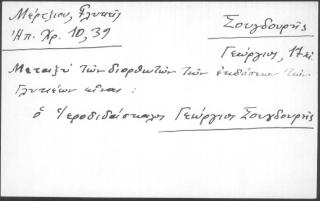 Μέρτζιου, Γλυκεῖς
Ἠπ. Χρ. 10, 39
Σουγδουρῆς
Γεώργιος, 17 αἰ.
Μεταξύ τῶν διορθωτῶν τῶν ἐκδόσεων τῶν
Γλυκέων εἶναι :
ὁ Ἱεροδιδάσκαλος Γεώργιος Σουγδουρῆς